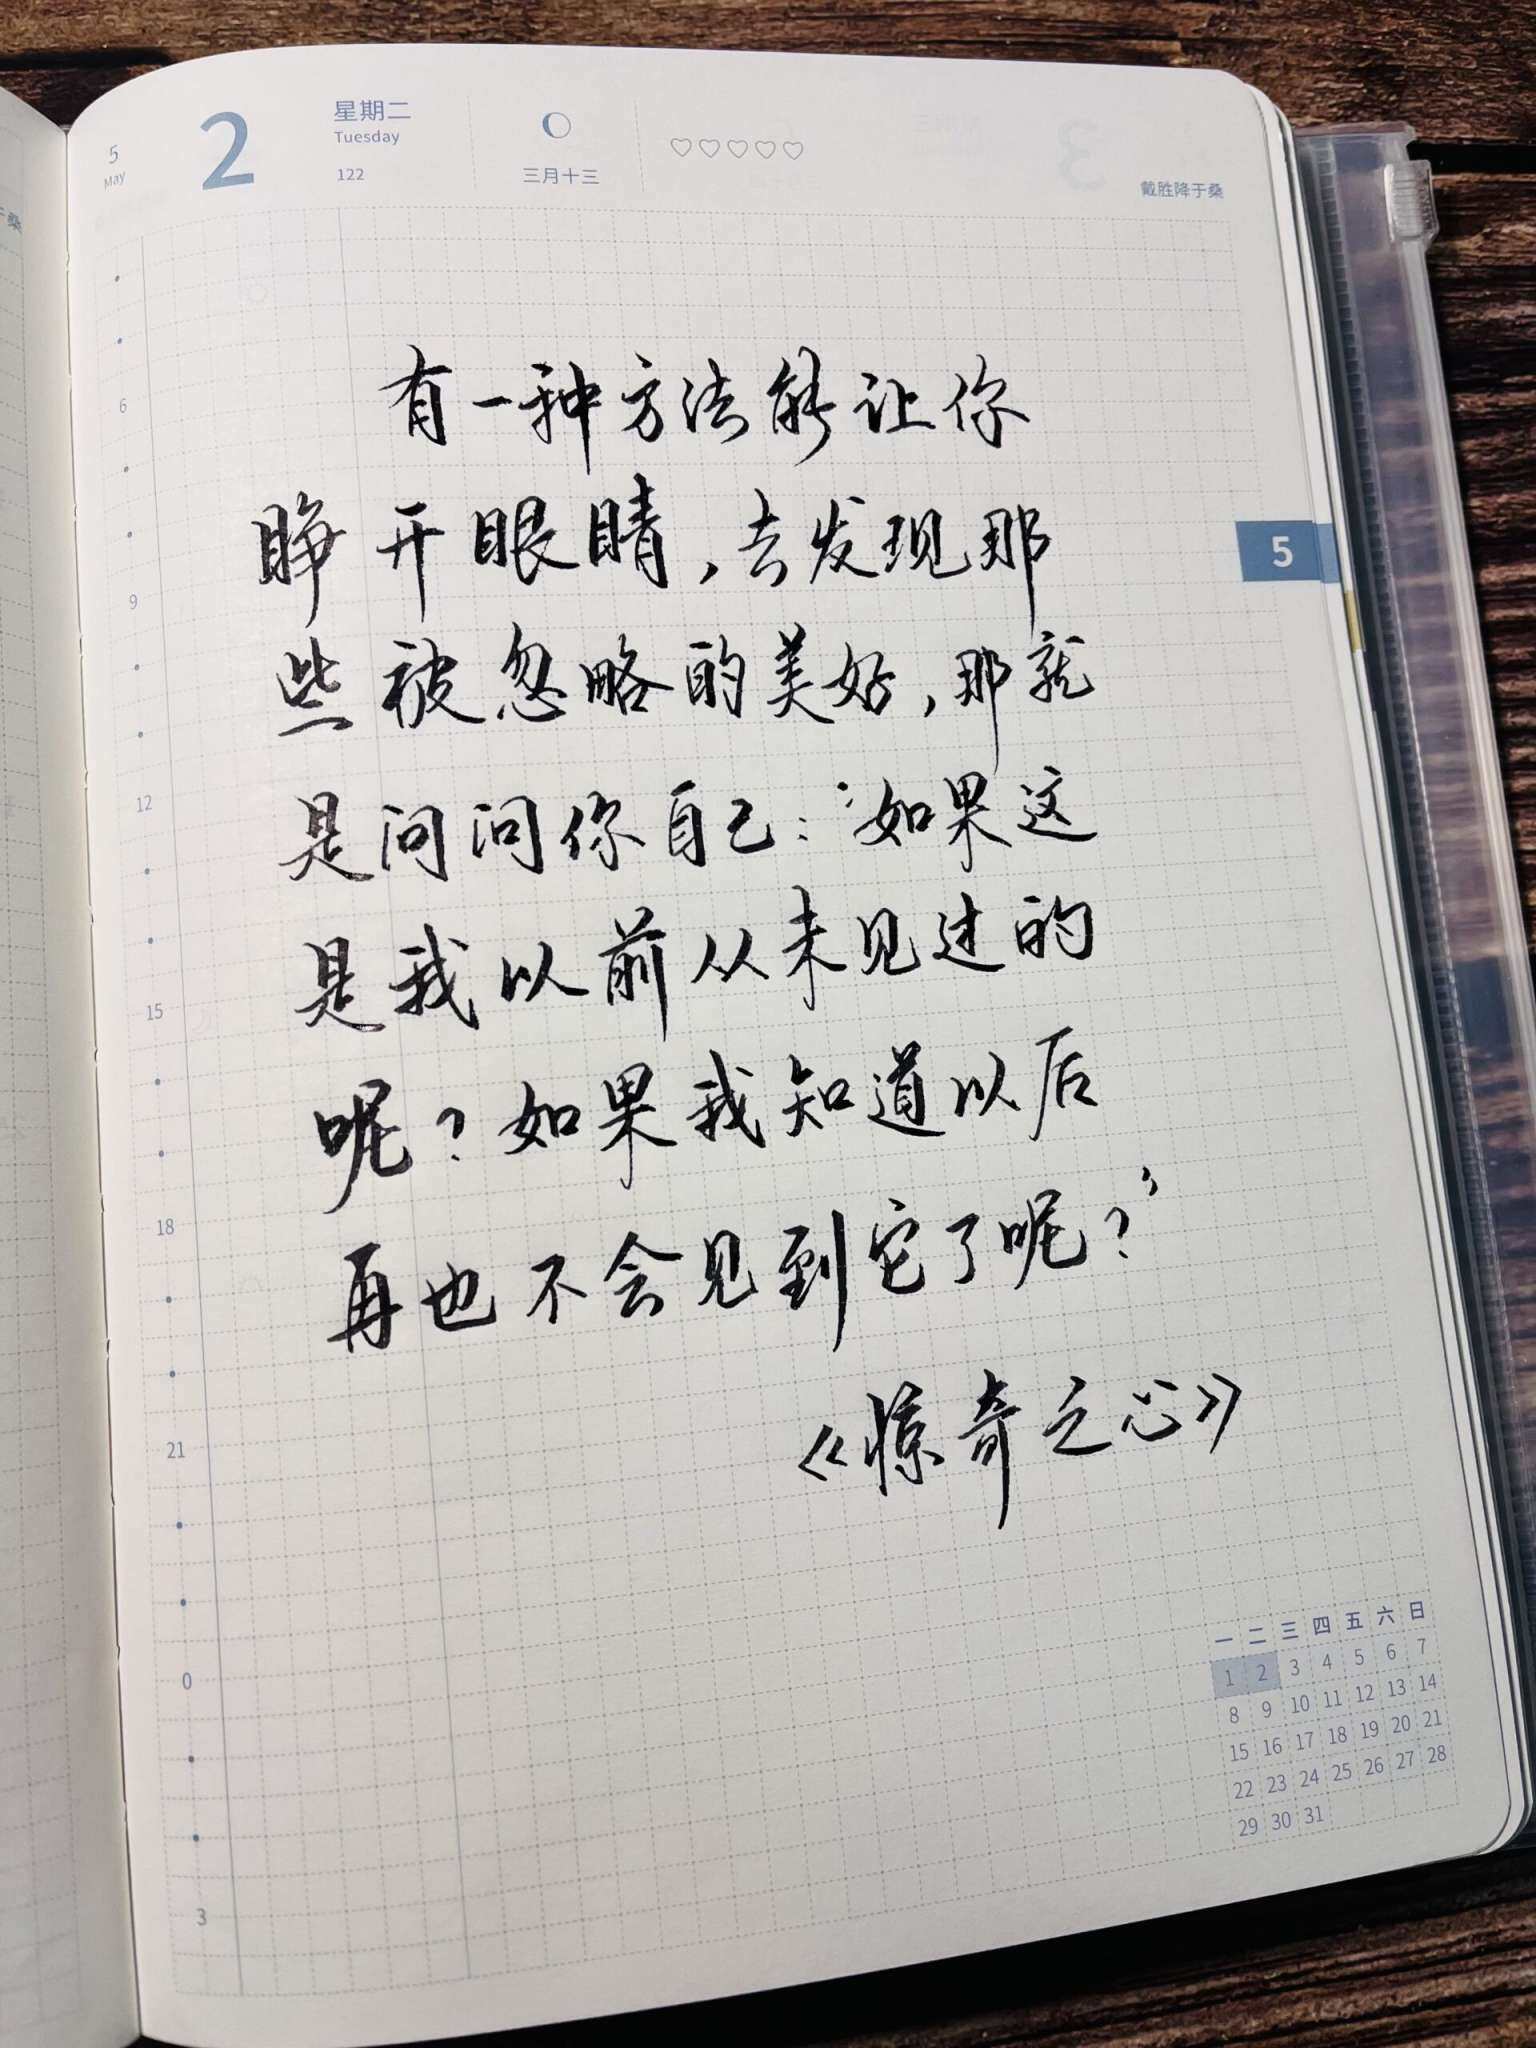 5
May
2
星期二
Tuesday
122
三月十三
♡♡♡♡♡
戴胜降于桑
有一种方法能让你
睁开眼睛，去发现那
些被忽略的美好，那就
是问问你自己：“如果这
是我以前从未见过的
呢？如果我知道以后
再也不会见到它了呢？”
《惊奇之心》
5
6
9
12
15
18
21
0
3
一 二 三 四 五 六 日
1 2 3 4 5 6 7
8 9 10 11 12 13 14
15 16 17 18 19 20 21
22 23 24 25 26 27 28
29 30 31